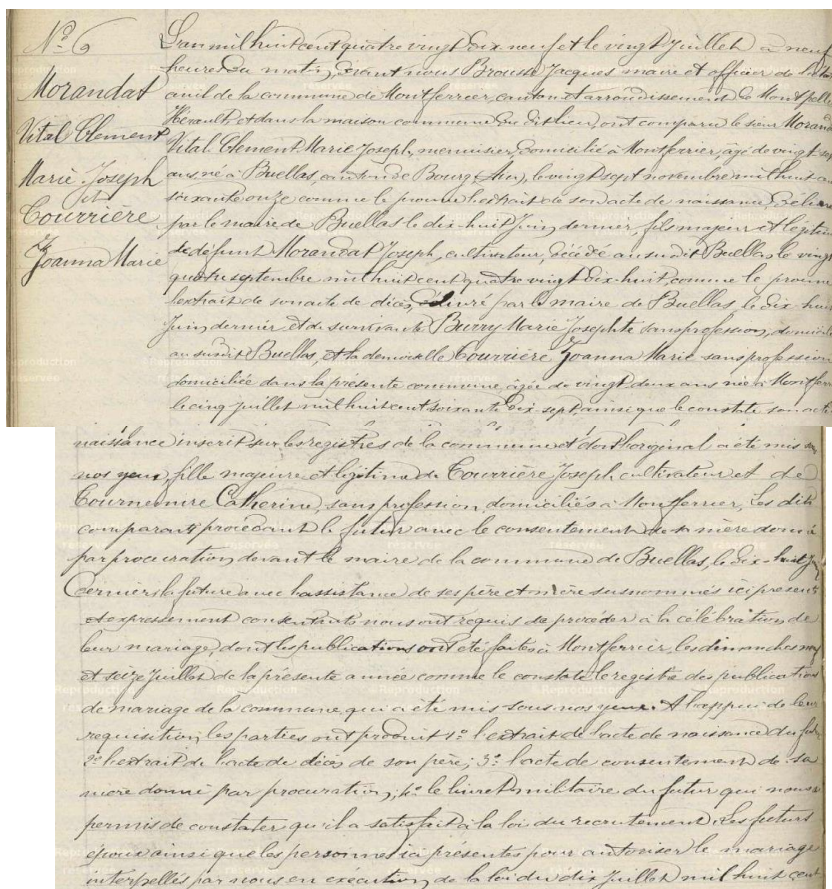 N° 6
Morandat
Vital Clement
Marie Joseph
et
Courrière
Joanna Marie
L'an mil huit cent quatre vingt dix neuf et le vingt Juillet à neuf
heures du matin, devant nous Brousse Jacques maire et officier de l'état
civil de la commune de Montferrier, canton et arrondissement de Montpellier
Hérault, et dans la maison commune du dit lieu, ont comparu le sieur Morandat
Vital Clement Marie Joseph, menuisier, domicilié à Montferrier, âgé de vingt sept
ans né à Buellas, canton de Bourg (Ain), le vingt sept novembre mil huit cent
soixante onze comme le prouve l'extrait de son acte de naissance, délivré
par le maire de Buellas le dix-huit Juin dernier, fils majeur et légitime
de défunt Morandat Joseph, cultivateur, décédé au susdit Buellas le vingt
quatre septembre mil huit cent quatre vingt dix-huit, comme le prouve
l'extrait de son acte de décès, délivré par le maire de Buellas, le dix-huit
Juin dernier, et de survivante Burry Marie Josephte sans profession, domiciliée
au susdit Buellas, et la demoiselle Courrière Joanna Marie sans profession
domiciliée dans la présente commune, âgée de vingt deux ans née à Montferrier
le cinq Juillet mil huit cent soixante dix sept, ainsi que le constate son acte
naissance inscrit sur les registres de la commune et dont l'original a été mis sous
nos yeux, fille majeure et légitime de Courrière Joseph cultivateur et de
Tournemire Catherine, sans profession, domiciliés à Montferrier, Les dits
comparants procédant le futur avec le consentement de sa mère donné
par procuration devant le maire de la commune de Buellas, le dix-huit Juin
dernier, la future avec l'assistance de ses père et mère susnommés ici présents
et expressément consentants nous ont requis de procéder à la célébration de
leur mariage, dont les publications ont été faites à Montferrier, les dimanches neuf
et seize Juillet de la présente année comme le constate le registre des publications
de mariage de la commune, qui a été mis sous nos yeux. A l'appui de leur
requisition, les parties ont produit 1° l'extrait de l'acte de naissance du futur
2° l'extrait de l'acte de décès de son père; 3° l'acte de consentement de sa
mère donné par procuration; 4° le livret militaire du futur qui nous a
permis de constater qu'il a satisfait à la loi du recrutement. Les futurs
époux ainsi que les personnes ici présentes pour autoriser le mariage
interpellés par nous en exécution de la loi du dix Juillet mil huit cent